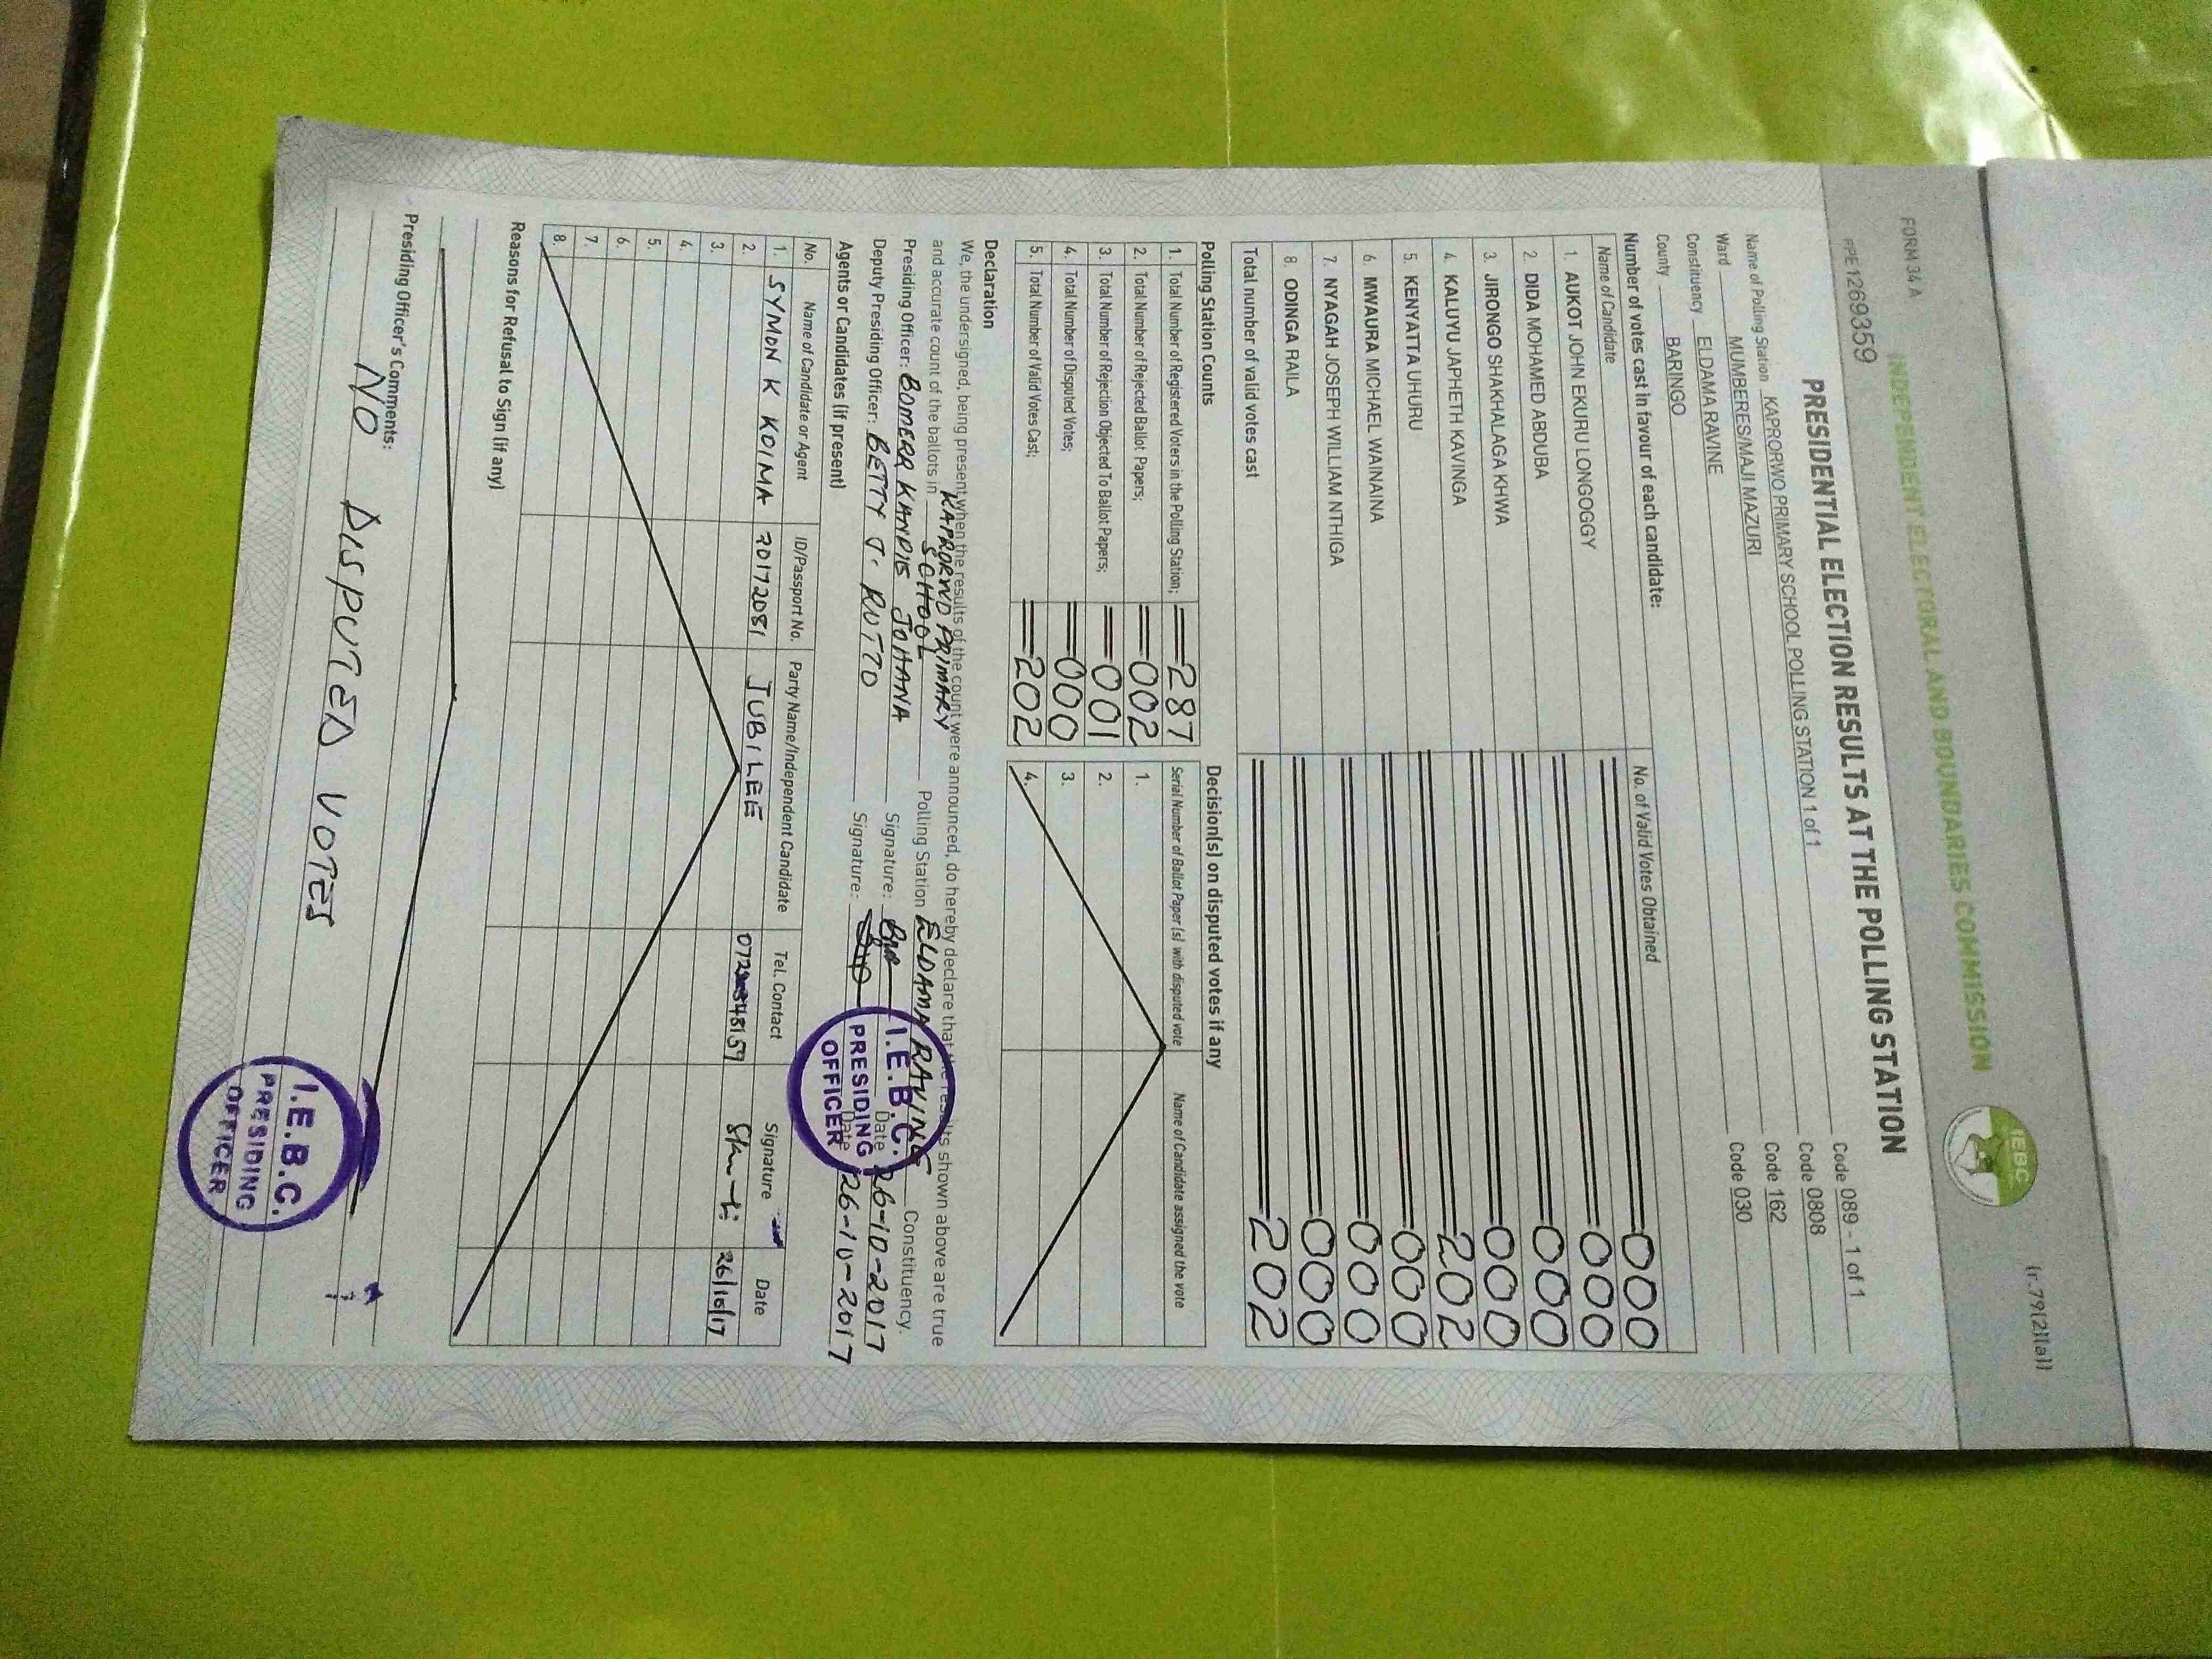 FORM 34 A
(r.79(2)(a))
INDEPENDENT ELECTORAL AND BOUNDARIES COMMISSION
IEBC
PPE1269359
PRESIDENTIAL ELECTION RESULTS AT THE POLLING STATION
Name of Polling Station KAPRORWO PRIMARY SCHOOL POLLING STATION 1 of 1 Code 089 - 1 of 1
Ward MUMBERES/MAJI MAZURI Code 0808
Constituency ELDAMA RAVINE Code 162
County BARINGO Code 030
Number of votes cast in favour of each candidate:
Name of Candidate No. of Valid Votes Obtained
1. AUKOT JOHN EKURU LONGOGGY 000
2. DIDA MOHAMED ABDUBA 000
3. JIRONGO SHAKHALAGA KHWA 000
4. KALUYU JAPHETH KAVINGA 000
5. KENYATTA UHURU 202
6. MWAURA MICHAEL WAINAINA 000
7. NYAGAH JOSEPH WILLIAM NTHIGA 000
8. ODINGA RAILA 000
Total number of valid votes cast 202
Polling Station Counts
1. Total Number of Registered Voters in the Polling Station; 287
2. Total Number of Rejected Ballot Papers; 002
3. Total Number of Rejection Objected To Ballot Papers; 001
4. Total Number of Disputed Votes; 000
5. Total Number of Valid Votes Cast; 202
Decision(s) on disputed votes if any
Serial Number of Ballot Paper (s) with disputed vote Name of Candidate assigned the vote
1.
2.
3.
4.
Declaration
We, the undersigned, being present when the results of the count were announced, do hereby declare that the results shown above are true
and accurate count of the ballots in KAPRORWO PRIMARY SCHOOL Polling Station ELDAMA RAVINE Constituency.
Presiding Officer: BOMERR KANDIE JOHANA Signature: Date 26-10-2017
Deputy Presiding Officer: BETTY J. RUTTO Signature: Date 26-10-2017
I.E.B.C.
PRESIDING
OFFICER
Agents or Candidates (if present)
No. Name of Candidate or Agent ID/Passport No. Party Name/Independent Candidate Tel. Contact Signature Date
1. SYMON K KOIMA 20172081 JUBILEE 26/10/17
2.
3.
4.
5.
6.
7.
8.
Reasons for Refusal to Sign (if any)
Presiding Officer's Comments:
NO DISPUTED VOTES
I.E.B.C.
PRESIDING
OFFICER